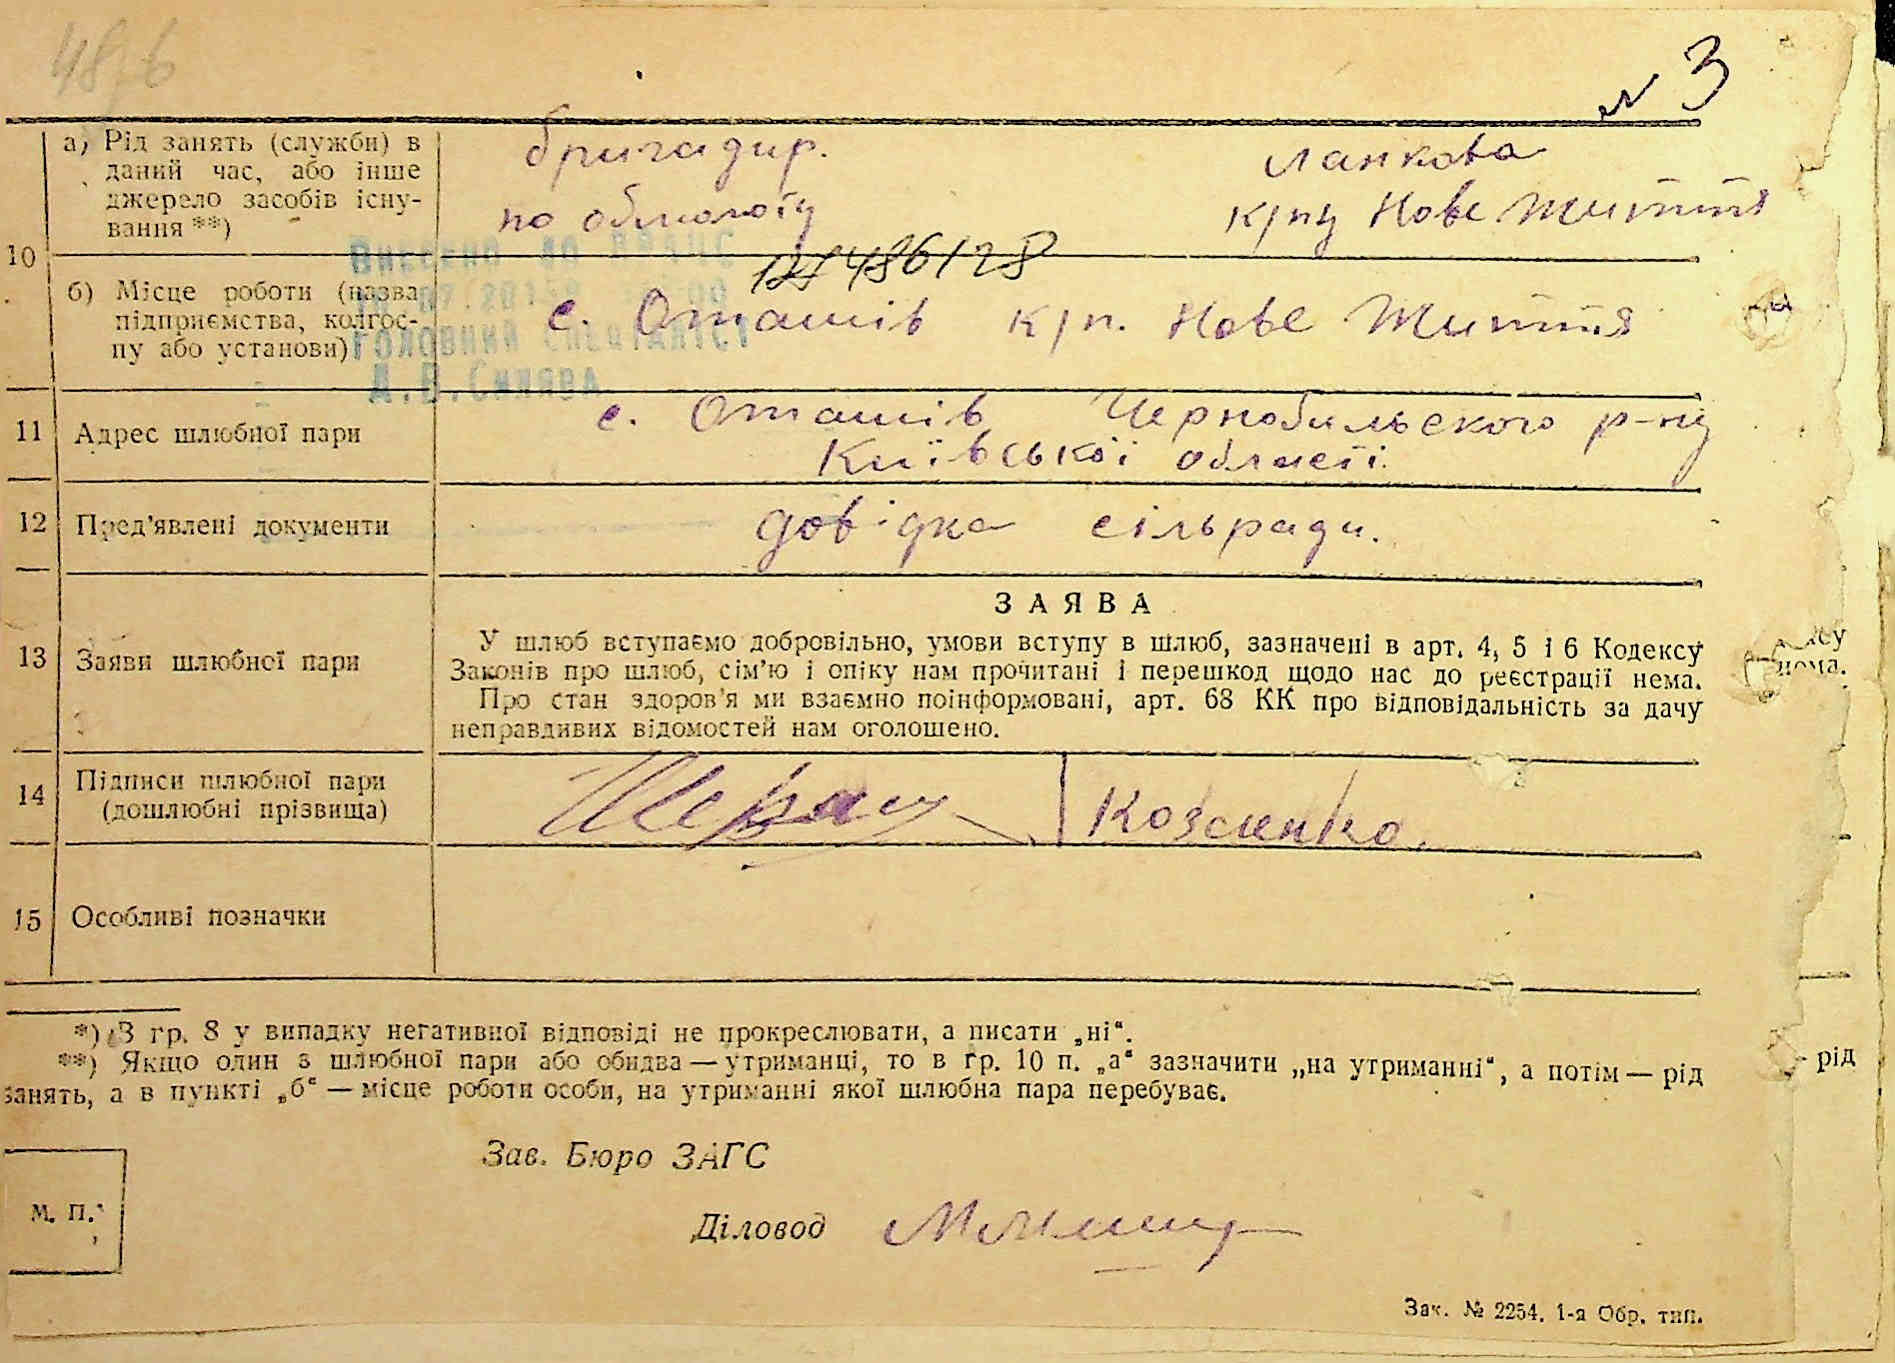 48/6
№ 3
а) Рід занять (служби) в
даний час, або інше
джерело засобів існу-
вання **)
бригадир.
по облікоту
ланкова
к/пу Нове Життя
10
б) Місце роботи (назва
підприємства, колгос-
пу або установи)
Внесено до ДРАЦС
Головний спеціаліст
486128
с. Оташів к/п. Нове Життя
11
Адрес шлюбної пари
с. Оташів Чернобильского р-ну
Київської області.
12
Пред'явлені документи
довідка сільради.
13
Заяви шлюбної пари
ЗАЯВА
У шлюб вступаємо добровільно, умови вступу в шлюб, зазначені в арт. 4, 5 і 6 Кодексу
Законів про шлюб, сім'ю і опіку нам прочитані і перешкод щодо нас до реєстрації нема.
Про стан здоров'я ми взаємно поінформовані, арт. 68 КК про відповідальність за дачу
неправдивих відомостей нам оголошено.
14
Підписи шлюбної пари
(дошлюбні прізвища)
Козенко.
15
Особливі позначки
*) В гр. 8 у випадку негативної відповіді не прокреслювати, а писати „ні“.
**) Якщо один з шлюбної пари або обидва — утриманці, то в гр. 10 п. „а“ зазначити „на утриманні“, а потім — рід
занять, а в пункті „б“ — місце роботи особи, на утриманні якої шлюбна пара перебуває.
рід
Зав. Бюро ЗАГС
М. П.
Діловод
Зак. № 2254. 1-а Обр. тип.